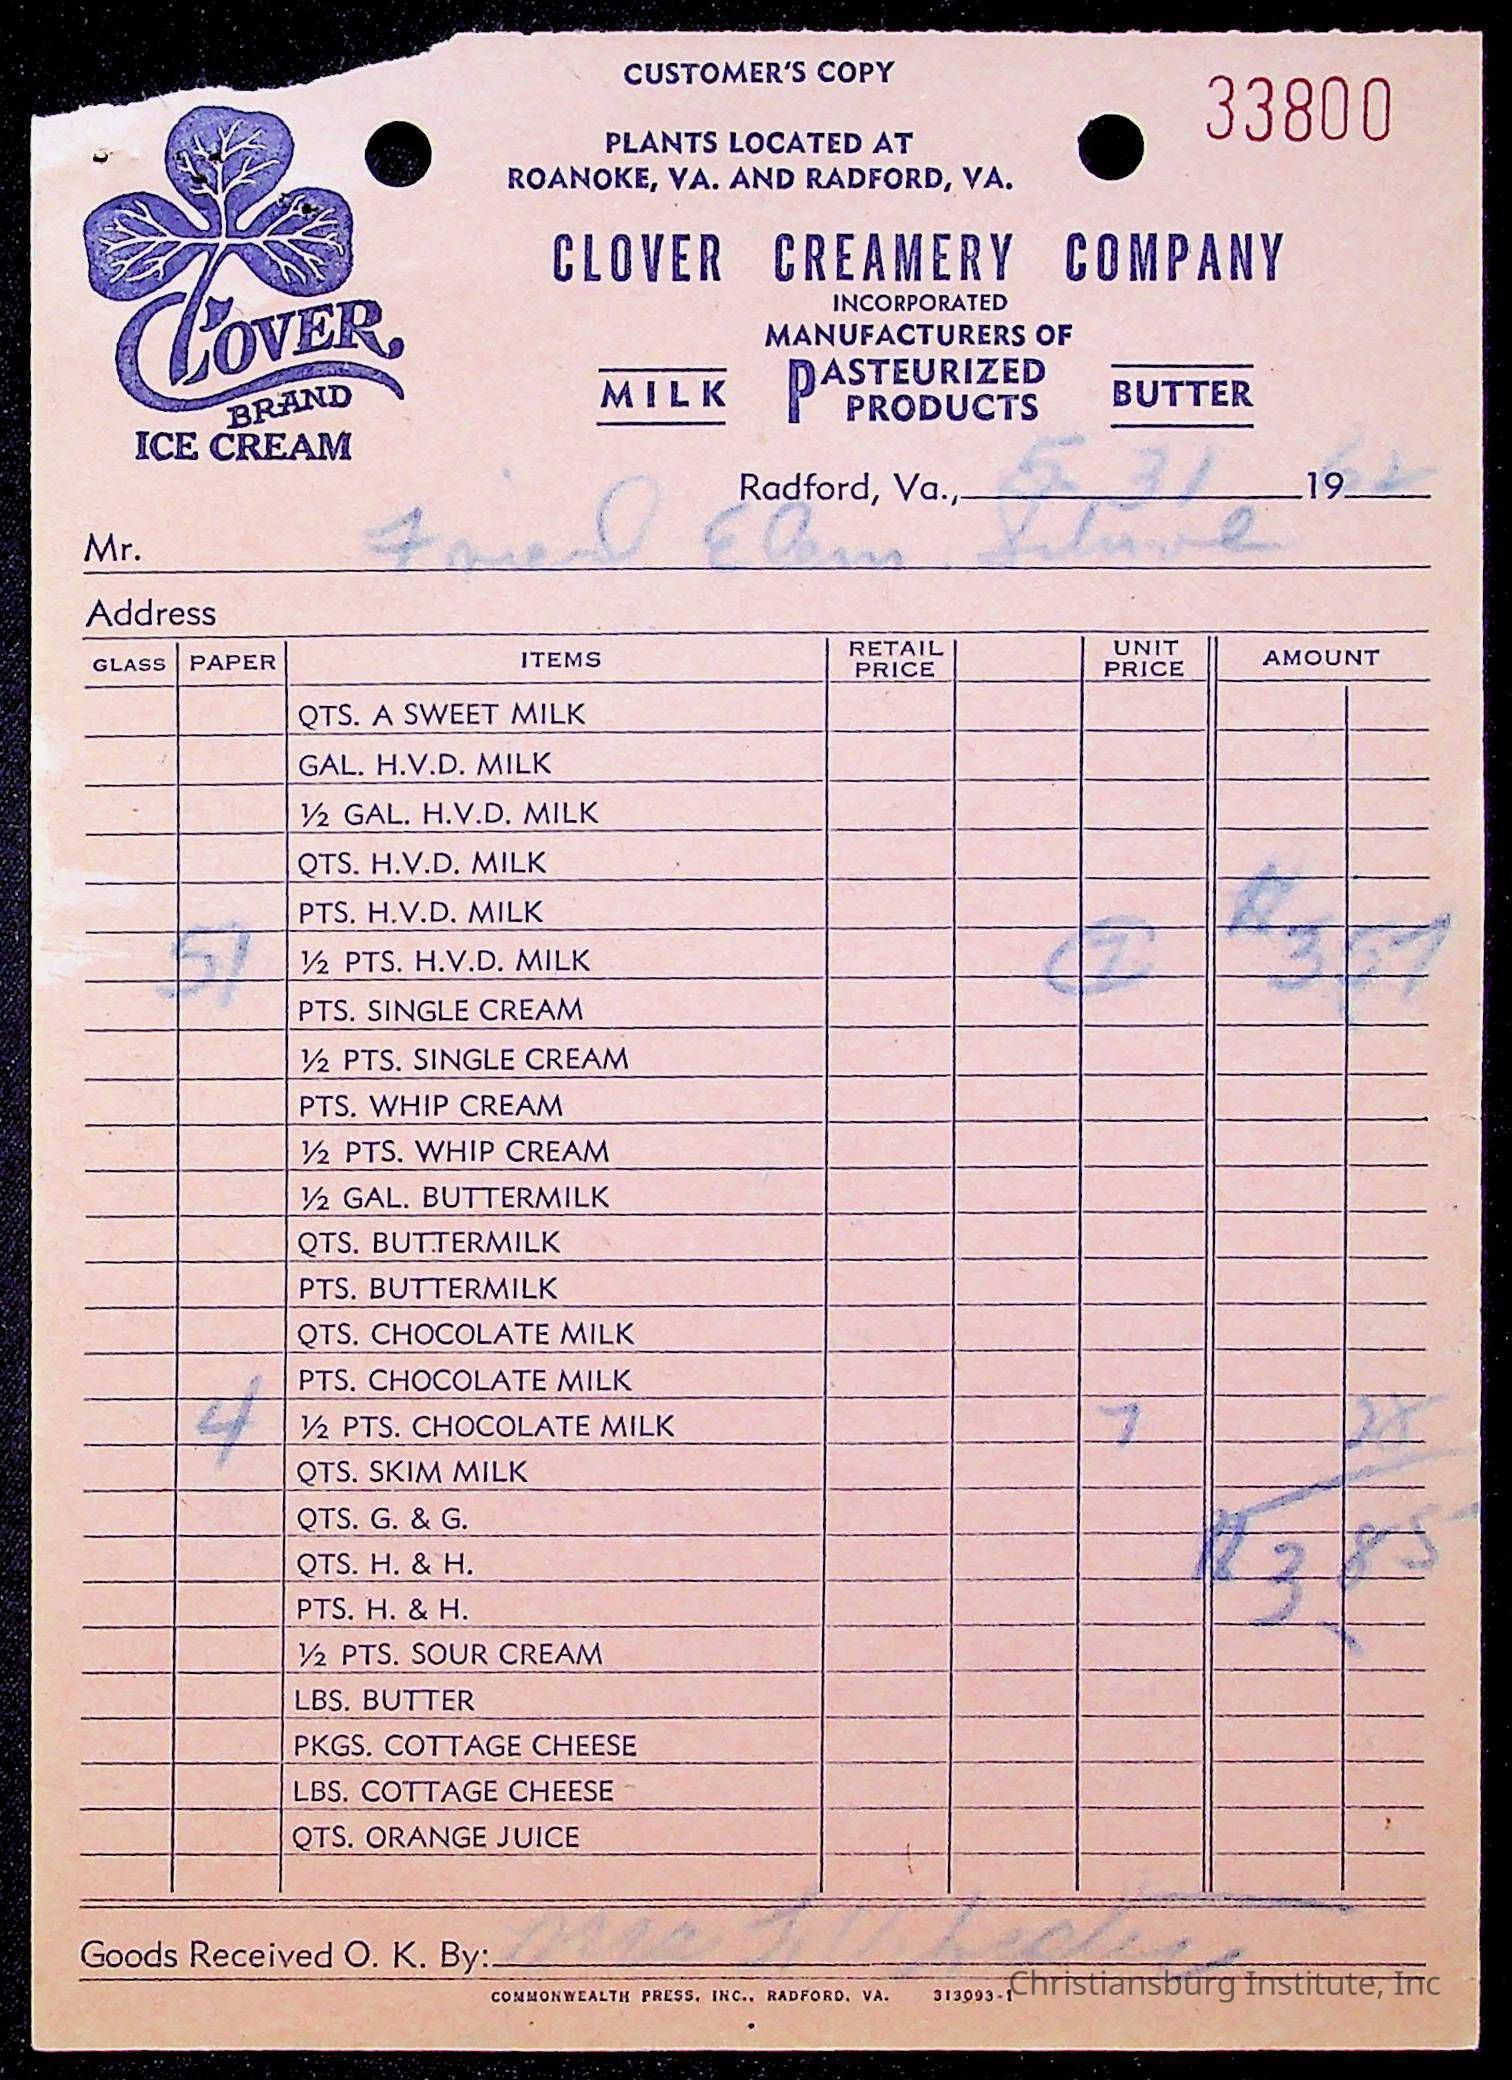 CUSTOMER'S COPY
33800
PLANTS LOCATED AT
ROANOKE, VA. AND RADFORD, VA.
CLOVER CREAMERY COMPANY
INCORPORATED
MANUFACTURERS OF
MILK PASTEURIZED PRODUCTS BUTTER
CLOVER
BRAND
ICE CREAM
Radford, Va., 5 31 1962
Mr. Friend Elem. School
Address
GLASS PAPER ITEMS RETAIL PRICE UNIT PRICE AMOUNT
QTS. A SWEET MILK
GAL. H.V.D. MILK
½ GAL. H.V.D. MILK
QTS. H.V.D. MILK
PTS. H.V.D. MILK
51 ½ PTS. H.V.D. MILK 7 3 57
PTS. SINGLE CREAM
½ PTS. SINGLE CREAM
PTS. WHIP CREAM
½ PTS. WHIP CREAM
½ GAL. BUTTERMILK
QTS. BUTTERMILK
PTS. BUTTERMILK
QTS. CHOCOLATE MILK
PTS. CHOCOLATE MILK
4 ½ PTS. CHOCOLATE MILK 7 28
QTS. SKIM MILK
QTS. G. & G.
QTS. H. & H. 3 85
PTS. H. & H.
½ PTS. SOUR CREAM
LBS. BUTTER
PKGS. COTTAGE CHEESE
LBS. COTTAGE CHEESE
QTS. ORANGE JUICE
Goods Received O. K. By:
COMMONWEALTH PRESS, INC., RADFORD, VA. 313093-1
Christiansburg Institute, Inc